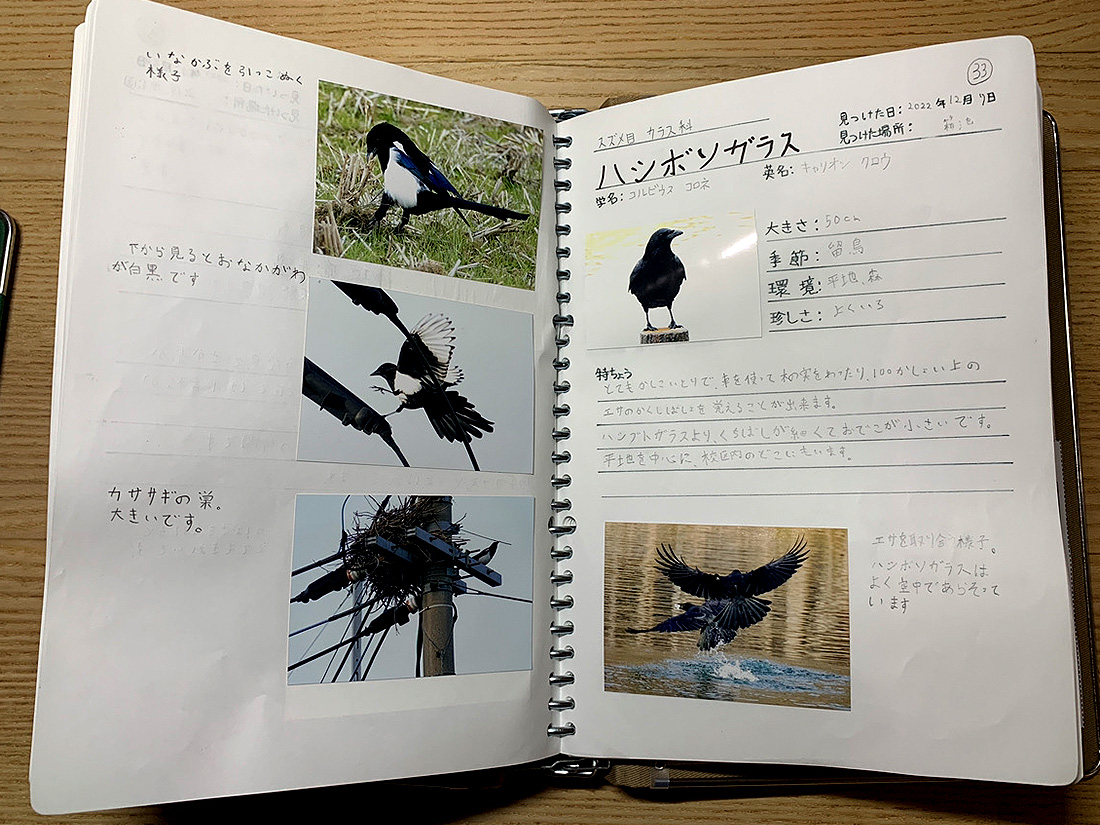 いなかぶを引っこぬく
様子
下から見るとおなかがわ
が白黒です
カササギの巣。
大きいです。
33
スズメ目 カラス科
見つけた日：2022年12月17日
見つけた場所：
ハシボソガラス
学名：コルビウス コロネ
英名：キャリオン クロウ
大きさ：50cm
季節：留鳥
環境：平地、森
珍しさ：よくいる
特ちょう
とてもかしこいとりで、車を使って木の実をわったり、100かしょい上の
エサのかくしばしょを覚えることが出来ます。
ハシブトガラスより、くちばしが細くておでこが小さいです。
平地を中心に、校区内のどこにもいます。
エサを取り合う様子。
ハシボソガラスは
よく空中であらそって
います